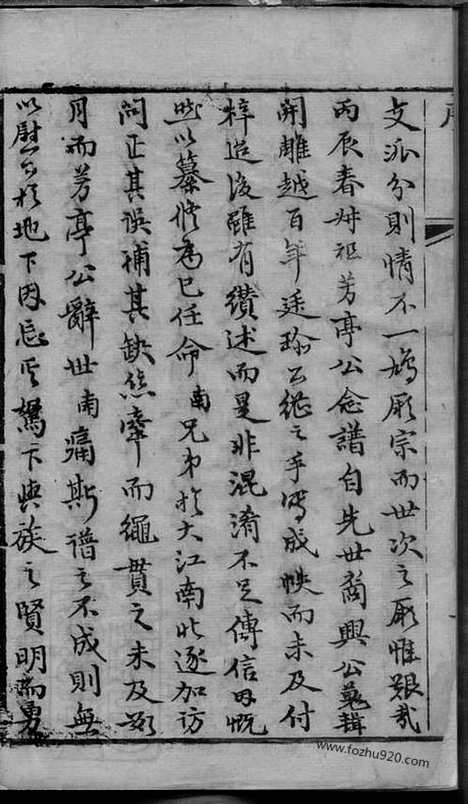 支派分則情不一鳩厥宗而世次之厥惟艱哉
丙辰春叔祖芳亭公念譜自先世裔興公蒐輯
開雕越百年廷瑜公継之手寫成帙而未及付
梓迨後雖有纘述而是非混淆不足傳信因慨
然以纂修為己任命南兄弟於大江南北逐加访
問正其误補其缺條牽而繩貫之未及數
月而芳亭公辭世南痛斯谱之不成則無
以慰公於地下因忘其駑下與族之賢明而勇
www.fozhu920.com